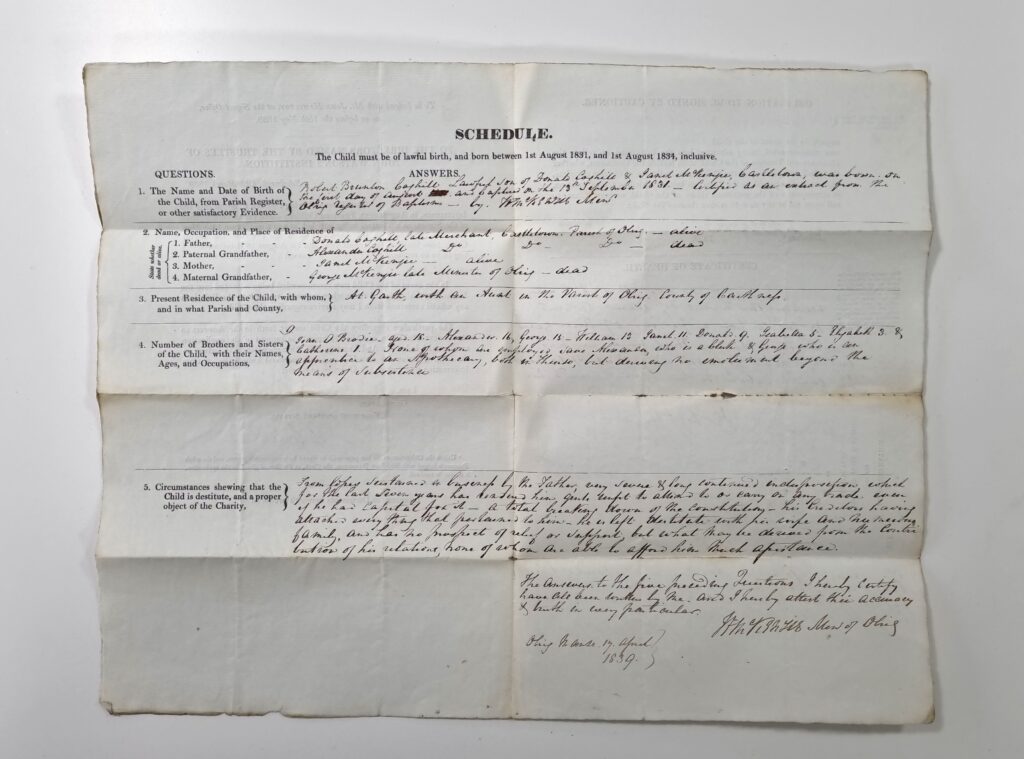 SCHEDULE.
The Child must be of lawful birth, and born between 1st August 1831, and 1st August 1834, inclusive.
QUESTIONS. ANSWERS.
1. The Name and Date of Birth of the Child, from Parish Register, or other satisfactory Evidence.
Robert Brunton Coghill, Lawful son of Donald Coghill & Janet McKenzie, Castletown, was born on
the first day of August and baptised on the 13th September 1831 – as an extract from the
Olrig Register of Baptisms – by Minr
2. Name, Occupation, and Place of Residence of
State whether dead or alive.
1. Father, - - - Donald Coghill, late Merchant, Castletown, Parish of Olrig – alive
2. Paternal Grandfather, - Alexander Coghill Do Do Do – dead
3. Mother, - - - Janet McKenzie – alive
4. Maternal Grandfather, - George McKenzie late Minister of Olrig – dead
3. Present Residence of the Child, with whom, and in what Parish and County,
At Garth, with an Aunt in the Parish of Olrig County of Caithness
4. Number of Brothers and Sisters of the Child, with their Names, Ages, and Occupations,
9
Brodie, aged 18 – Alexander 16, George 15 – William 13 Janet 11, Donald 9, Isabella 5 – Elizabeth 3 &
Catherine 1 – None of whom are employed save Alexander, who is a clerk & George who is an
apprentice to an Apothecary, both in Thurso, but deriving no emolument beyond the
means of subsistence
5. Circumstances shewing that the Child is destitute, and a proper object of the Charity,
From losses sustained in business by the Father, very severe & long continued indisposition, which
for the last Seven years has rendered him quite unfit to attend to or carry on any trade even
if he had Capital for it – a total breaking down of the constitution – his creditors having
attached every thing that pertained to him – he is left destitute with his wife and numerous
family, and has no prospect of relief or support, but what may be derived from the contri
bution of his relations, none of whom are able to afford him much assistance.
The answers to the five preceding Questions I hereby Certify
have all been written by me – and I hereby attest their accuracy
& truth in every particular.
Minr of Olrig
Olrig Manse 17 April
1839.